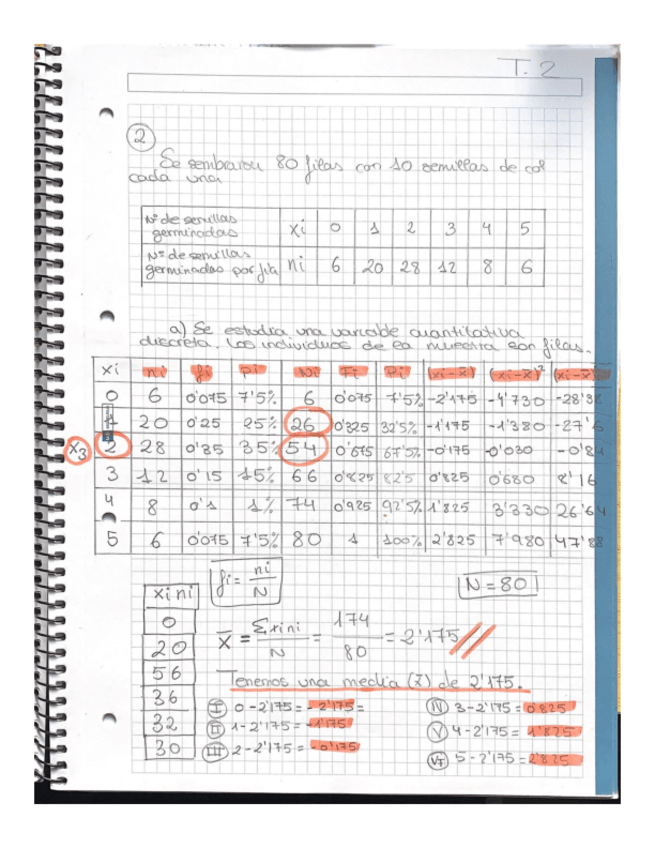 T. 2
2
Se sembraron 80 filas con 10 semillas de col
cada una
Nº de semillas germinadas xi 0 1 2 3 4 5
Nº de semillas germinadas por fila ni 6 20 28 12 8 6
a) Se estudia una variable cuantitativa
discreta. Los individuos de la muestra son filas.
xi ni fi pi Ni Fi Pi (xi-x̄) (xi-x̄)²
0 6 0'075 7'5% 6 0'075 7'5% -2'175 -4'730
20 0'25 25% 26 0'325 32'5% -1'175 -1'380
x3 2 28 0'35 35% 54 0'675 67'5% -0'175 -0'030
3 12 0'15 15% 66 0'825 82'5 0'825 0'680 8'16
4 8 0'1 1% 74 0'925 92'5% 1'825 3'330 26'64
5 6 0'075 7'5% 80 1 100% 2'825 7'980 47'88
fi = ni/N
N = 80
xi ni
0
20
56
36
32
30
x̄ = Σxini/N = 174/80 = 2'175
Tenemos una media (x̄) de 2'175.
I 0-2'175 = -2'175 =
II 1-2'175 = -1'175
III 2-2'175 = -0'175
IV 3-2'175 = 0'825
V 4-2'175 = 1'825
VI 5-2'175 = 2'825